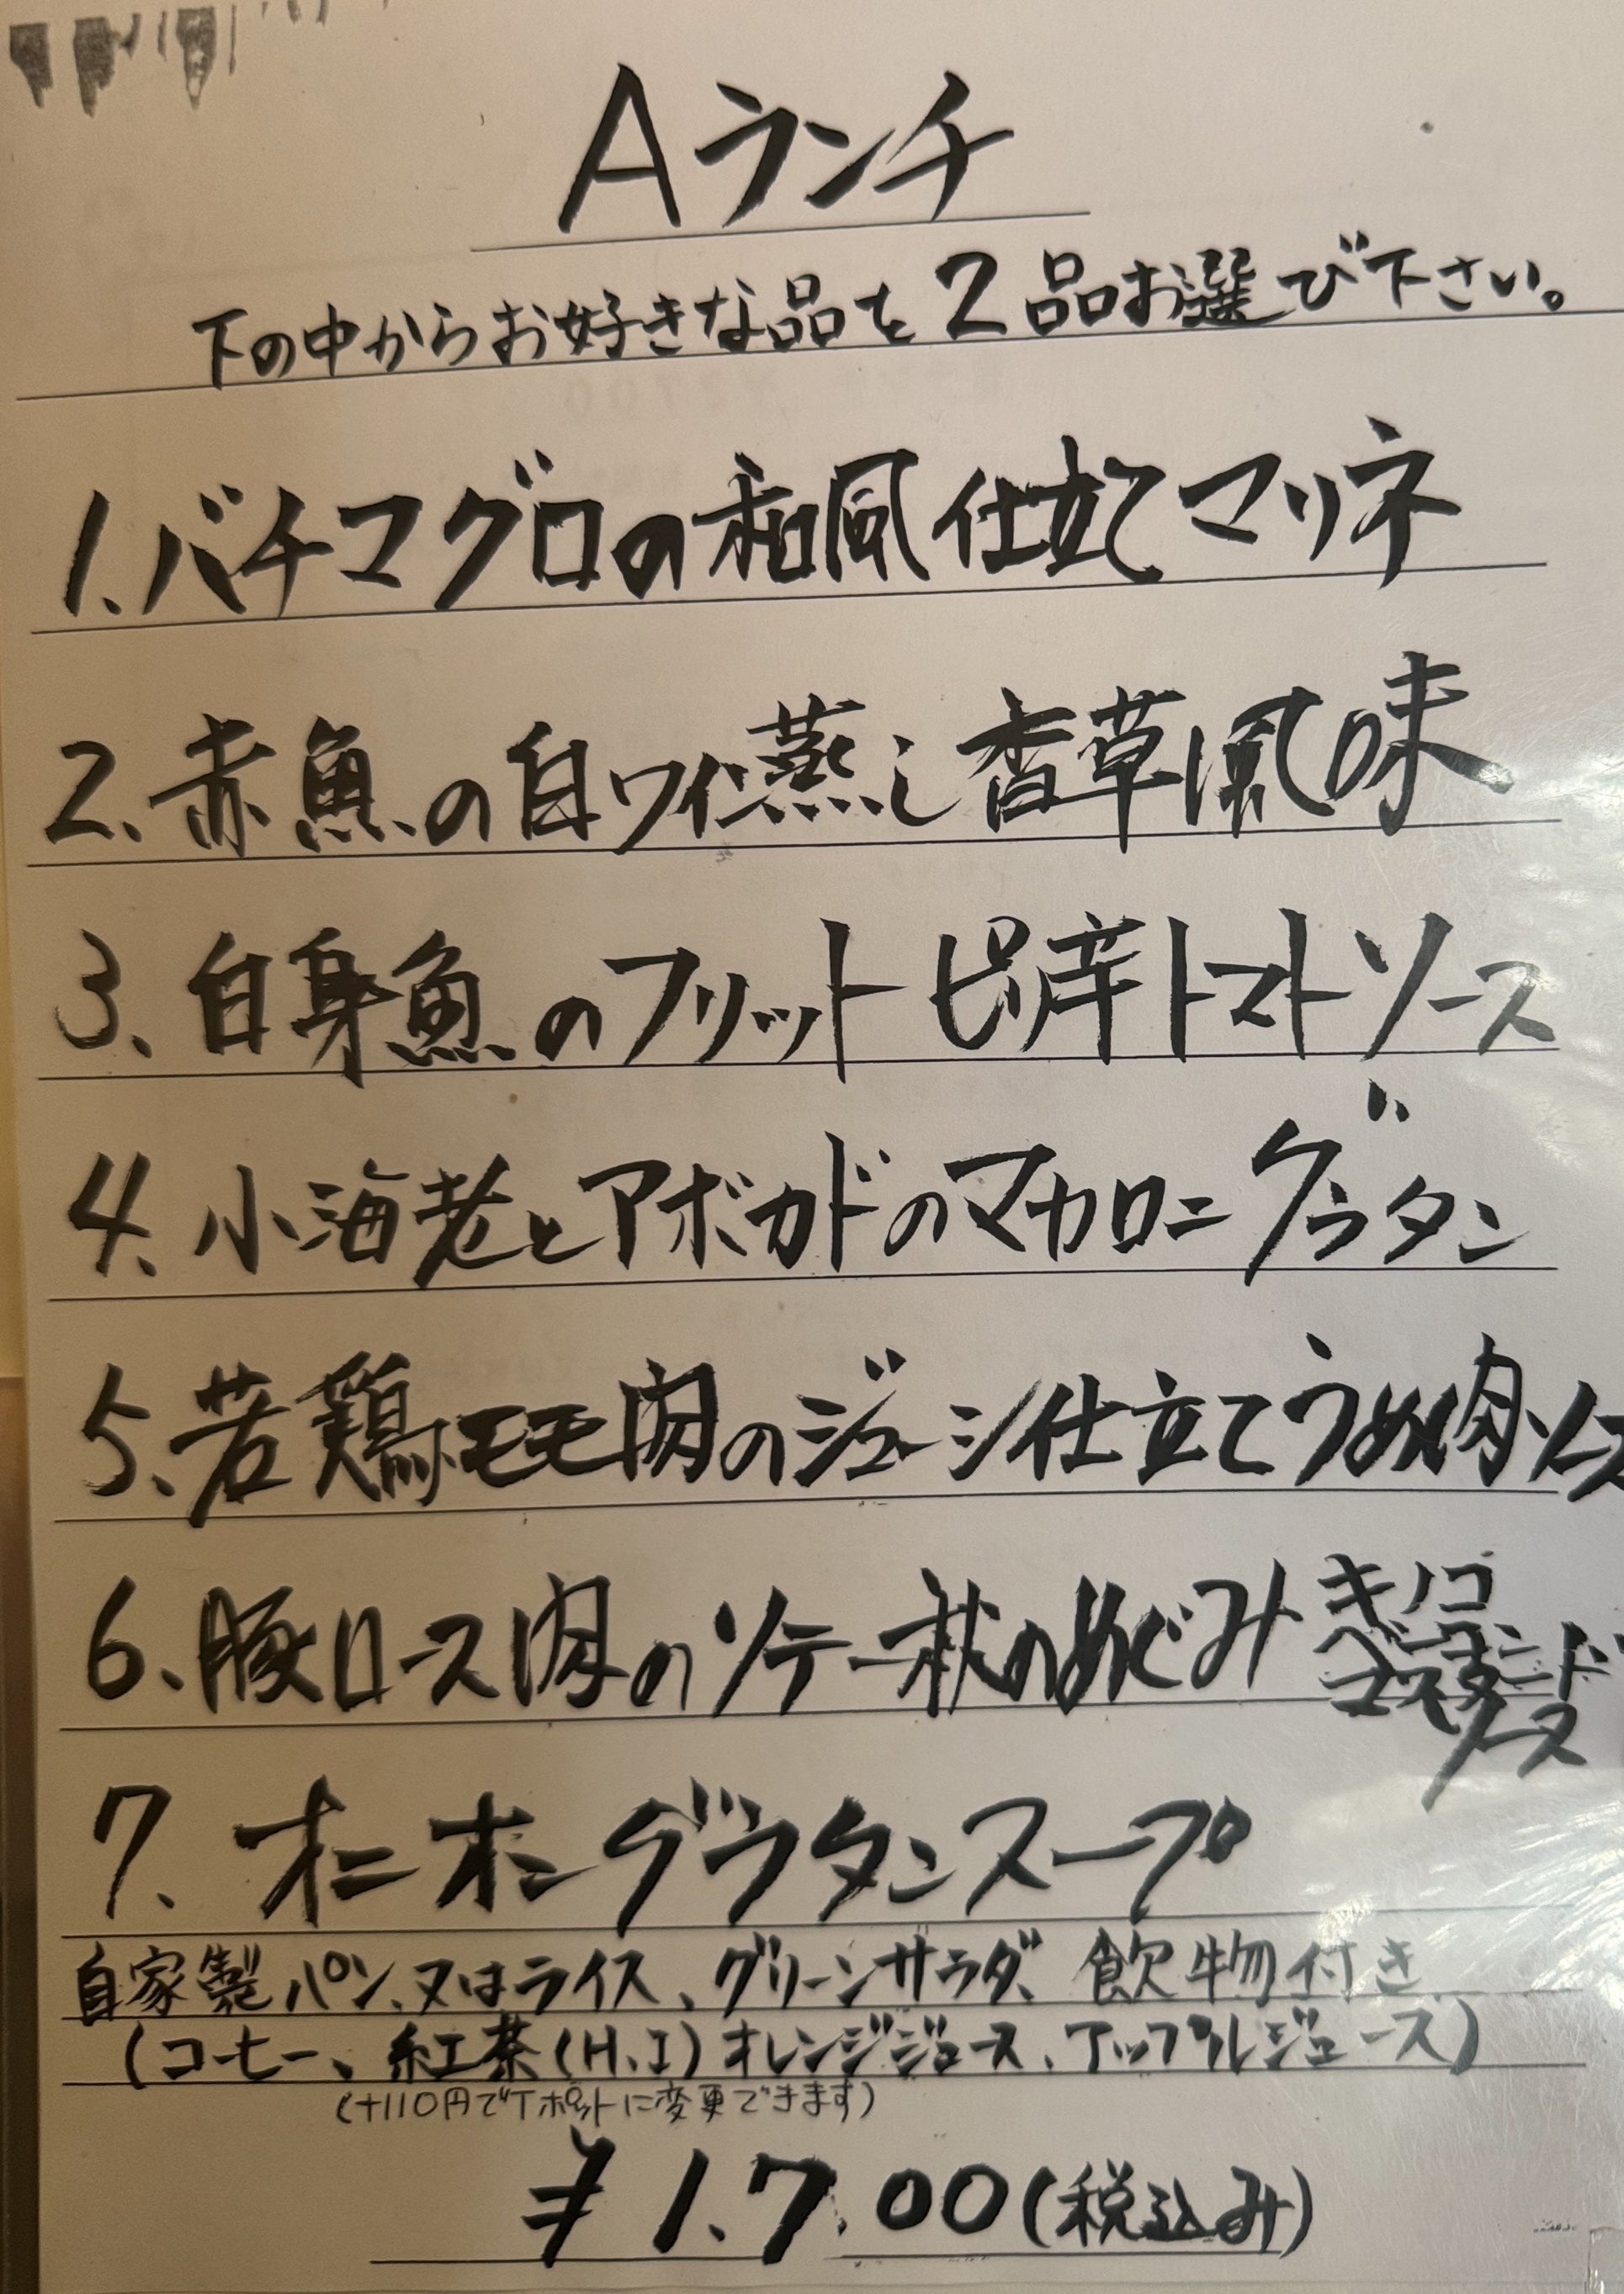 Aランチ
下の中からお好きな品を2品お選び下さい。
1.バチマグロの和風仕立てマリネ
2.赤魚の白ワイン蒸し香草風味
3.白身魚のフリット ピリ辛トマトソース
4.小海老とアボカドのマカロニグラタン
5.若鶏モモ肉のジューシー仕立てうめ肉ソース
6.豚ロース肉のソテー秋のめぐみ キノコ
ベーコン
マスタード
ソース
7.オニオングラタンスープ
自家製パン、又はライス、グリーンサラダ、飲物付き
(コーヒー、紅茶(H.I)オレンジジュース、アップルジュース)
(+110円でTポットに変更できます)
¥1.7.00(税込み)